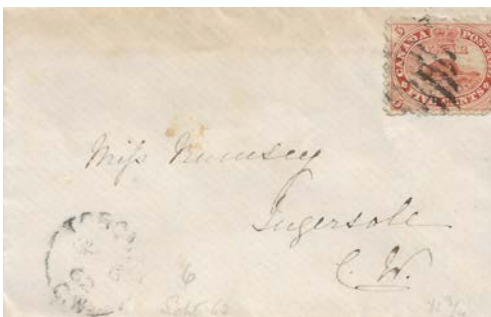 CANADA POSTAGE
FIVE CENTS
Miss Rumsey
Ingersole
C. W.
TORONTO
C.W.
6
Sept 62